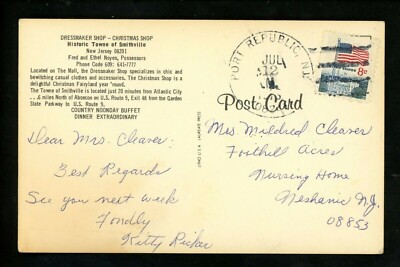 DRESSMAKER SHOP - CHRISTMAS SHOP
Historic Towne of Smithville
New Jersey 08201
Fred and Ethel Noyes, Possessors
Phone Code 609: 641-7777
Located on The Mall, the Dressmaker Shop specializes in chic and
becoming casual clothes and accessories. The Christmas Shop is
a delightful Christmas Fairyland year 'round.
The Towne of Smithville is located just 20 minutes from Atlantic City
6 miles North of Absecon on U.S. Route 9, Exit 48 from the Garden
State Parkway to U.S. Route 9.
COUNTRY NOONDAY BUFFET
DINNER EXTRAORDINARY
PORT REPUBLIC N.J.
JUL
12
8c
Post Card
Dear Mrs. Cleaver:
Best Regards
See you next week
Fondly
Kitty Ricker
Mrs. Mildred Cleaver
Foothill Acres
Nursing Home
Neshanic N.J.
08853